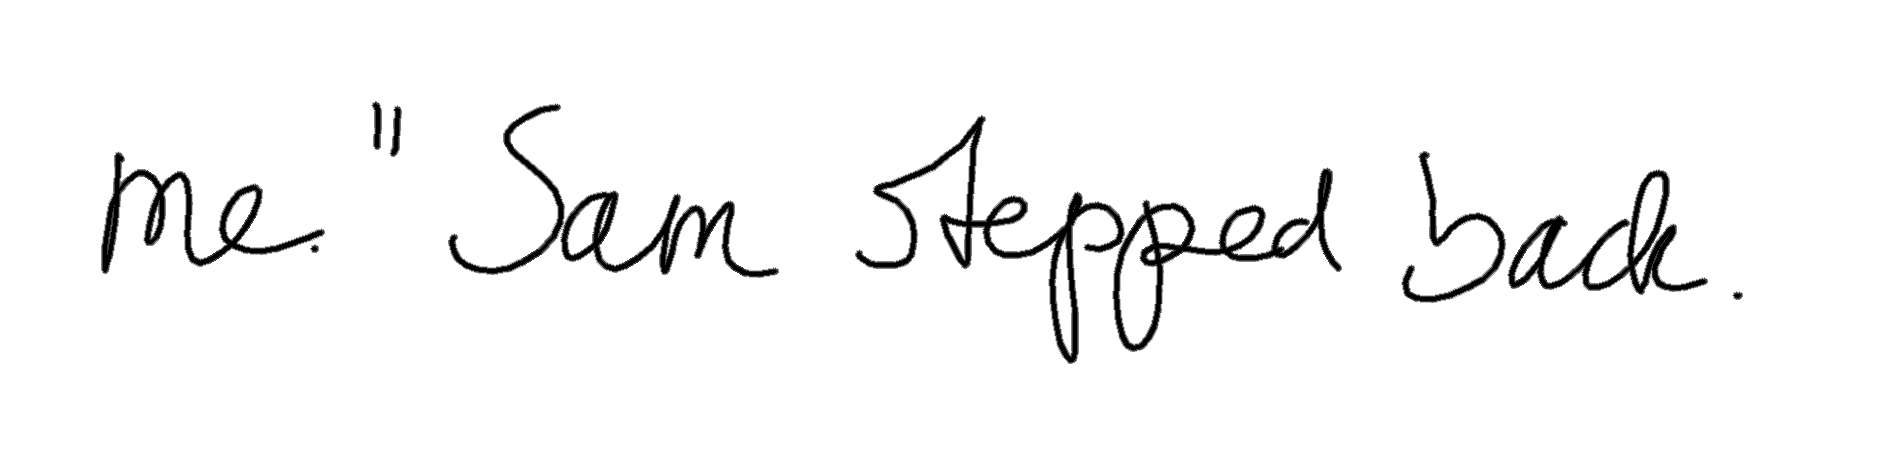 me." Sam stepped back.